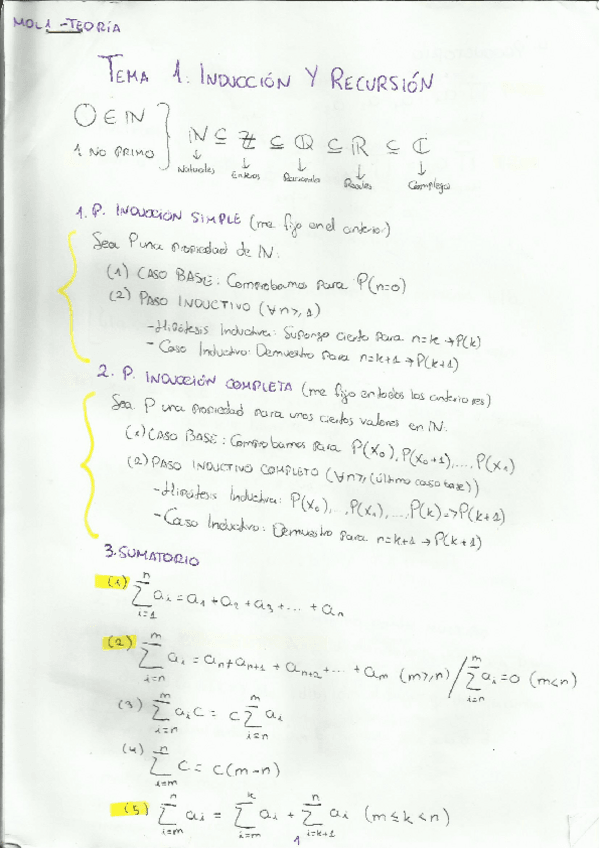 MOL1 - TEORÍA
TEMA 1. INDUCCIÓN Y RECURSIÓN
O ∈ IN
1 NO PRIMO
ℕ ⊆ ℤ ⊆ ℚ ⊆ ℝ ⊆ ℂ
↓ ↓ ↓ ↓ ↓
Naturales Enteros Racionales Reales Complejos
1. P. INDUCCIÓN SIMPLE (me fijo en el anterior)
Sea P una propiedad de IN:
(1) CASO BASE: Comprobamos para P(n=0)
(2) PASO INDUCTIVO (∀n≥1)
- Hipótesis Inductiva: Supongo cierto para n=k → P(k)
- Caso Inductivo: Demuestro para n=k+1 → P(k+1)
2. P. INDUCCIÓN COMPLETA (me fijo en todos los anteriores)
Sea P una propiedad para unos ciertos valores en IN:
(1) CASO BASE: Comprobamos para P(x₀), P(x₀+1), ..., P(x₁)
(2) PASO INDUCTIVO COMPLETO (∀n≥(último caso base))
- Hipótesis Inductiva: P(x₀), ..., P(x₁), ..., P(k) => P(k+1)
- Caso Inductivo: Demuestro para n=k+1 → P(k+1)
3. SUMATORIO
(1) ∑_{i=1}^{n} aᵢ = a₁ + a₂ + a₃ + ... + aₙ
(2) ∑_{i=n}^{m} aᵢ = aₙ + aₙ₊₁ + aₙ₊₂ + ... + aₘ (m≥n) / ∑_{i=n}^{m} aᵢ = 0 (m<n)
(3) ∑_{i=n}^{m} aᵢ c = c ∑_{i=n}^{m} aᵢ
(4) ∑_{i=m}^{n} c = c(m-n)
(5) ∑_{i=m}^{n} aᵢ = ∑_{i=m}^{k} aᵢ + ∑_{i=k+1}^{n} aᵢ (m≤k<n)
1